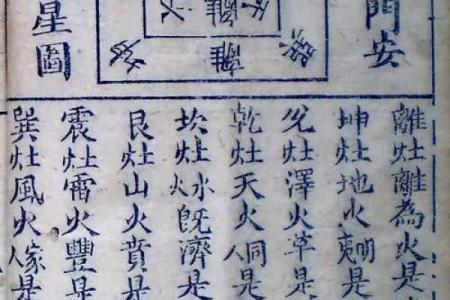 門安
離
離
星圖
離灶離為火是
坤灶地火明夷是
兌灶澤火革是
乾灶天火同人是
坎灶水火既濟是
艮灶山火賁是
震灶雷火豐是
巽灶風火家人是